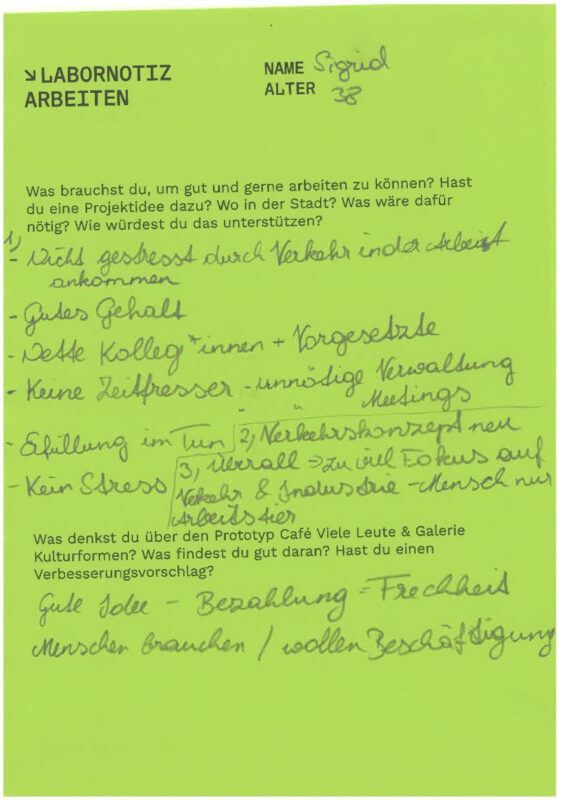 ↘LABORNOTIZ
ARBEITEN
NAME Sigrid
ALTER 38
Was brauchst du, um gut und gerne arbeiten zu können? Hast
du eine Projektidee dazu? Wo in der Stadt? Was wäre dafür
nötig? Wie würdest du das unterstützen?
1,
- Nicht gestresst durch Verkehr in der Arbeit
ankommen
- Gutes Gehalt
- Nette Kolleg*innen + Vorgesetzte
- Keine Zeitfresser - unnötige Verwaltung
- " Meetings
- Erfüllung im Tun
- Kein Stress
2, Verkehrskonzept neu
3, Überall ⇒ zu viel Fokus auf
Verkehr & Industrie - Mensch nur
Arbeitstier
Was denkst du über den Prototyp Café Viele Leute & Galerie
Kulturformen? Was findest du gut daran? Hast du einen
Verbesserungsvorschlag?
Gute Idee - Bezahlung = Frechheit
Menschen brauchen / wollen Beschäftigung